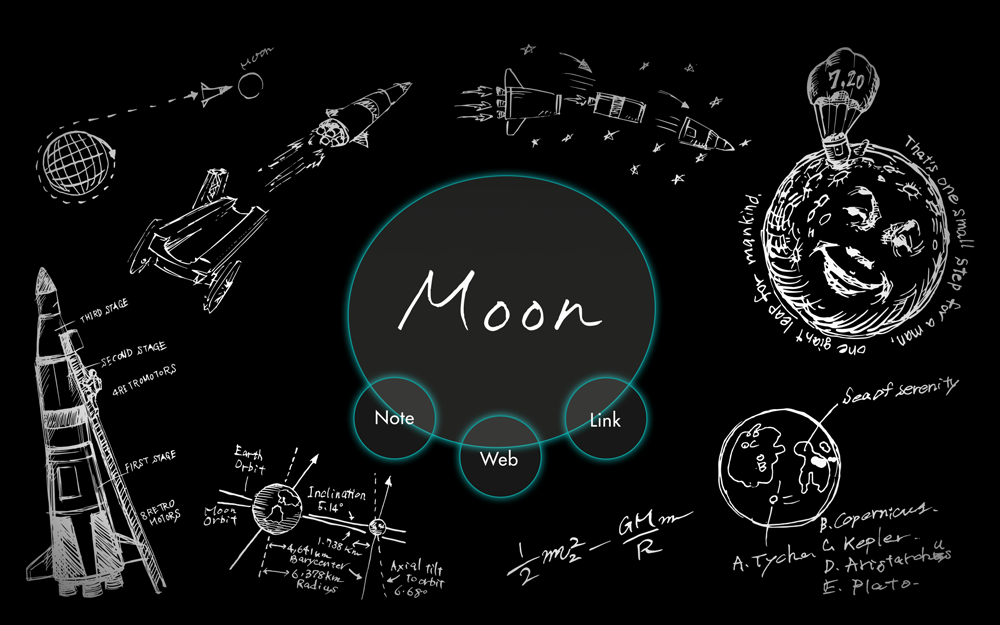 Moon
7.20
That's one small step for a man,
one giant leap for mankind.
Moon
Note
Web
Link
THIRD STAGE
SECOND STAGE
4RETROMOTORS
FIRST STAGE
8RETRO
MOTORS
Earth
Orbit
Moon
Orbit
Inclination
5.14°
1.738km
4,641km
Barycenter
6,378km
Radius
Axial tilt
to orbit
6.68°
1/2 mv2 - GMm/R
Sea of serenity
B
C
B
A. Tycho
B. Copernicus.
C. Kepler.
D. Aristarchus
E. Plato.